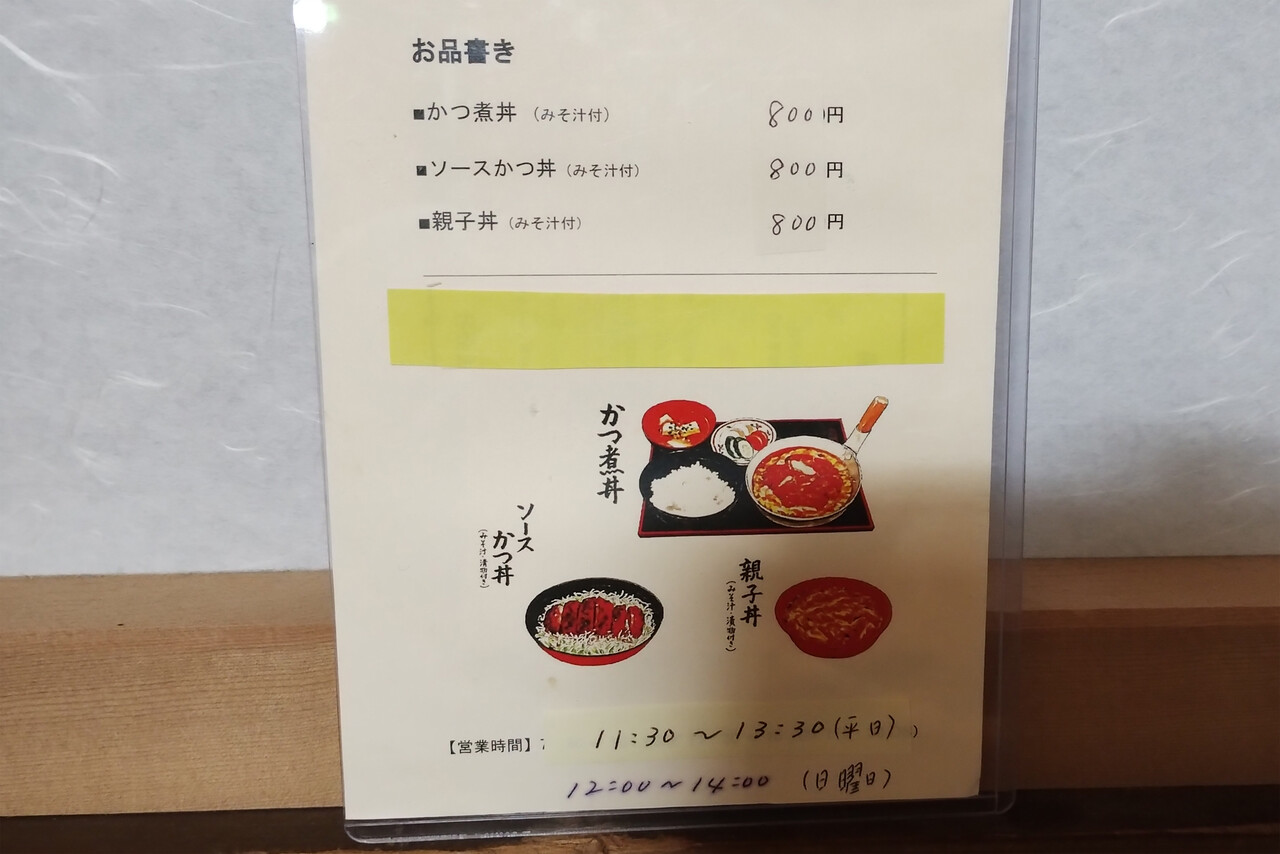 お品書き
■かつ煮丼 （みそ汁付） 800円
■ソースかつ丼（みそ汁付） 800円
■親子丼（みそ汁付） 800円
かつ煮丼
ソース
かつ丼
（みそ汁・漬物付き）
親子丼
（みそ汁・漬物付き）
【営業時間】 11:30～13:30(平日)
12:00～14:00 (日曜日)